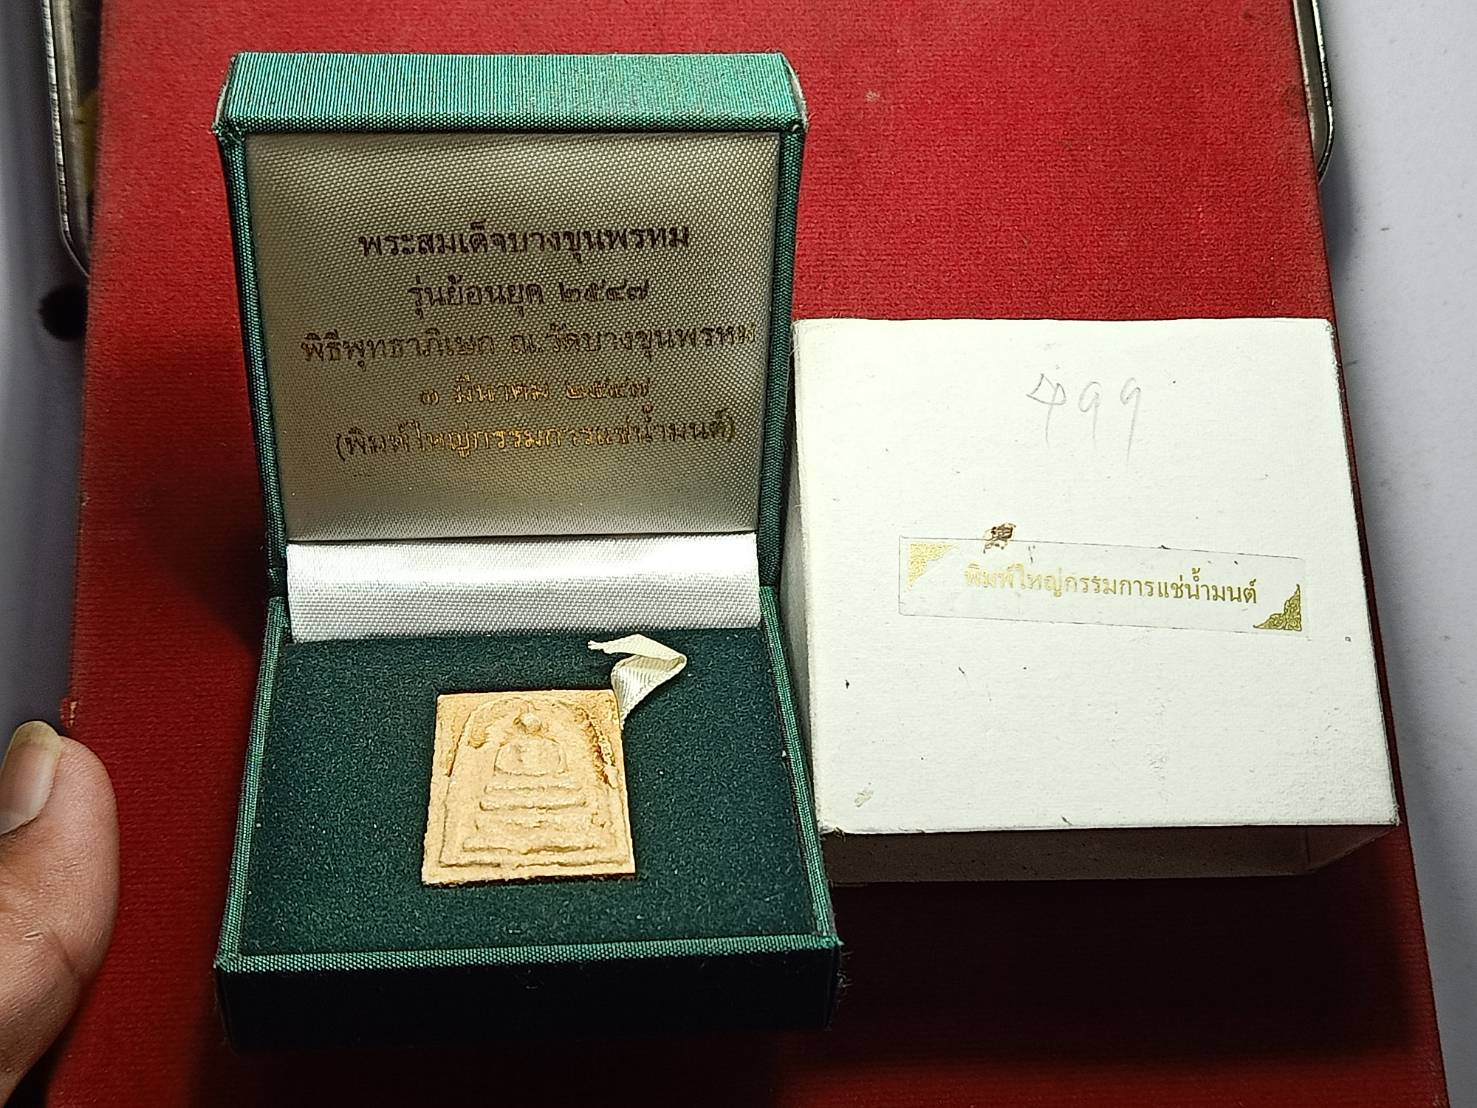 พระสมเด็จบางขุนพรหม
รุ่นย้อนยุค ๒๕๔๗
พิธีพุทธาภิเษก ณ วัดบางขุนพรหม
๑ มีนาคม ๒๕๔๗
(พิมพ์ใหญ่กรรมการแช่น้ำมนต์)
499
พิมพ์ใหญ่กรรมการแช่น้ำมนต์